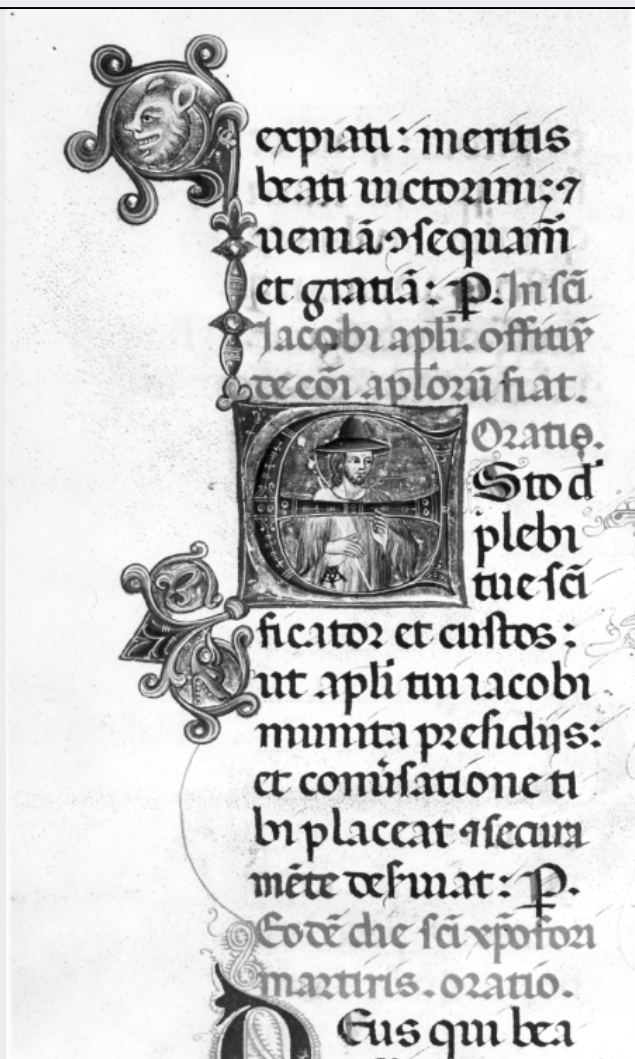 expiati: meritis
beati uictorini: ⁊
ueniā ↄsequam̄
et gratiā: P. In sc̄i
Jacobi apl̄i. offitiu᷑
de cōi apl̄oꝝ fiat.
Oratio.
ESto d̄
plebi
tue sc̄i
ficator et custos:
ut apl̄i tui iacobi
munita presidijs:
et conuersatione ti
bi placeat ⁊ secura
mēte deseruiat: P.
Eodē die sc̄i xp̄ofori
martiris. oratio.
DEus qui bea